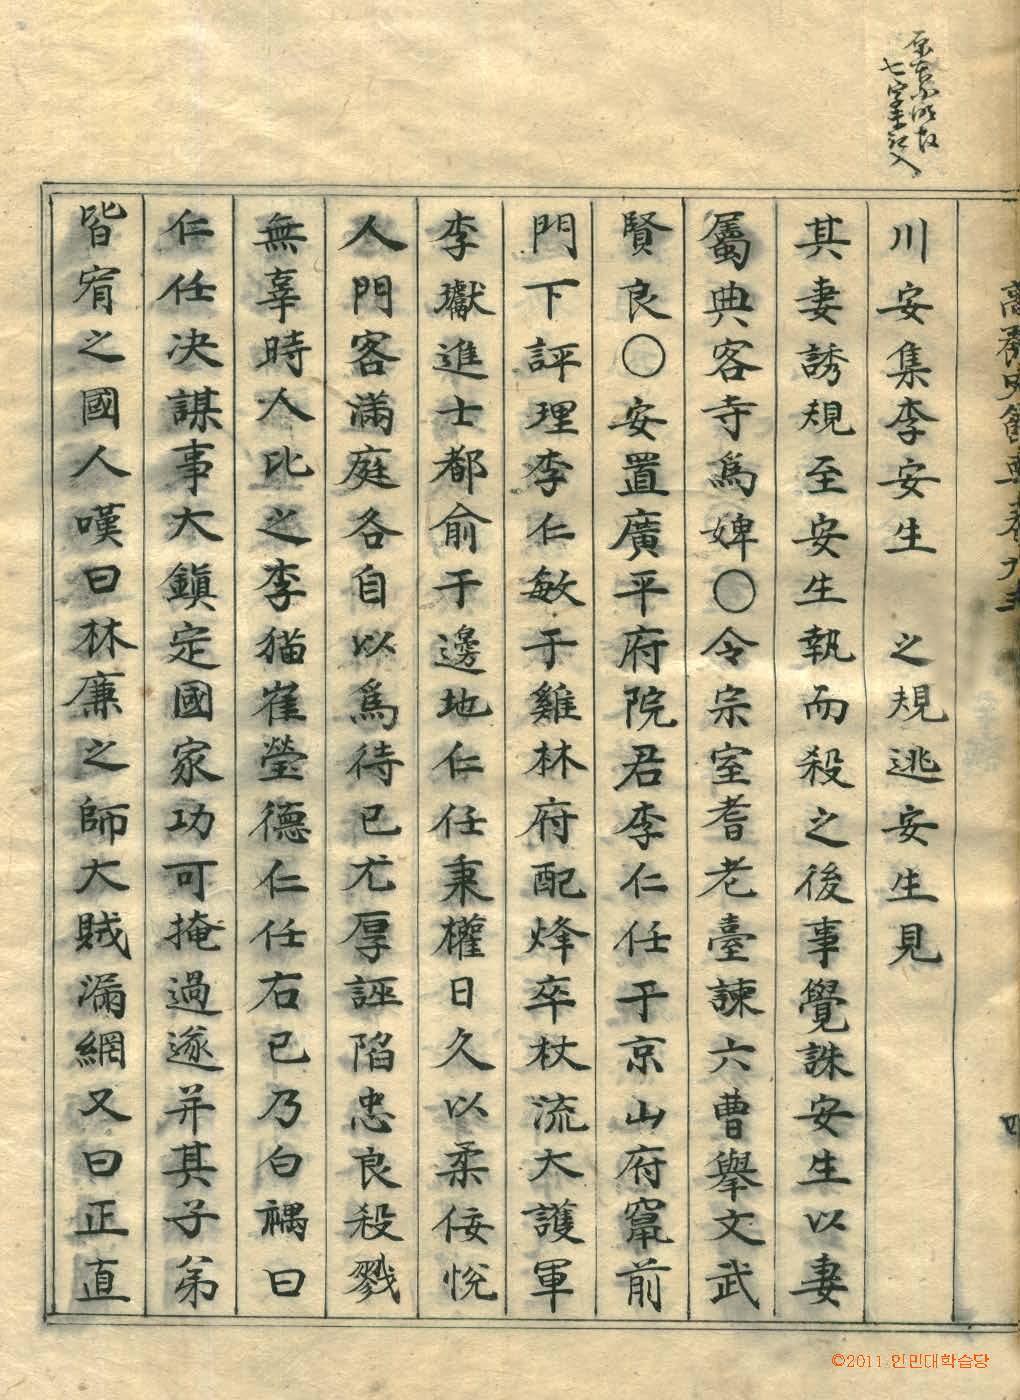 七字
入
川安集李安生 之規逃安生見
其妻誘規至安生執而殺之後事覺誅安生以妻
屬典客寺爲婢○令宗室耆老臺諫六曹擧文武
賢良○安置廣平府院君李仁任于京山府竄前
門下評理李仁敏于雞林府配烽卒杖流大護軍
李巘進士都兪于邊地仁任秉權日久以柔佞悅
人門客滿庭各自以爲待已尤厚誣陷忠良殺戮
無辜時人比之李猫崔瑩德仁任右已乃白禑曰
仁任决謀事大鎭定國家功可掩過遂并其子弟
皆宥之國人嘆曰林廉之師大賊漏網又曰正直
©2011.인민대학습당